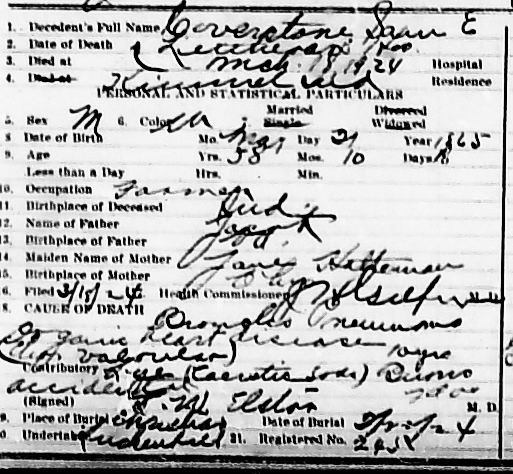 1. Decedent's Full Name Coverstone Sam E
2. Date of Death Lutheran Hos
3. Died at Mch 13 1924 Hospital
4. Died at Kimmel Ind Residence
PERSONAL AND STATISTICAL PARTICULARS
Married Divorced
5. Sex M 6. Color Single Widowed
8 Date of Birth Mo. May Day 21 Year 1865
9. Age Yrs. 58 Mos. 10 Days
Less than a Day Hrs. Min.
10. Occupation Farmer
11. Birthplace of Deceased Ind
12. Name of Father Jacob
13. Birthplace of Father
14. Maiden Name of Mother Jane Halteman
15. Birthplace of Mother
16. Filed 3/15/24 Health Commissioner
18. CAUSE OF DEATH Broncho Pneumonia
Organic heart disease
valvular) 10 yrs
Contributory (Caustic Soda) Burns
accidental
(Signed) Elston M. D.
19. Place of Burial Date of Burial
20 Undertaker 21. Registered No.